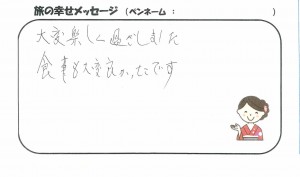 旅の幸せメッセージ （ペンネーム ： ）
大変楽しく過ごしました
食事も大変良かったです